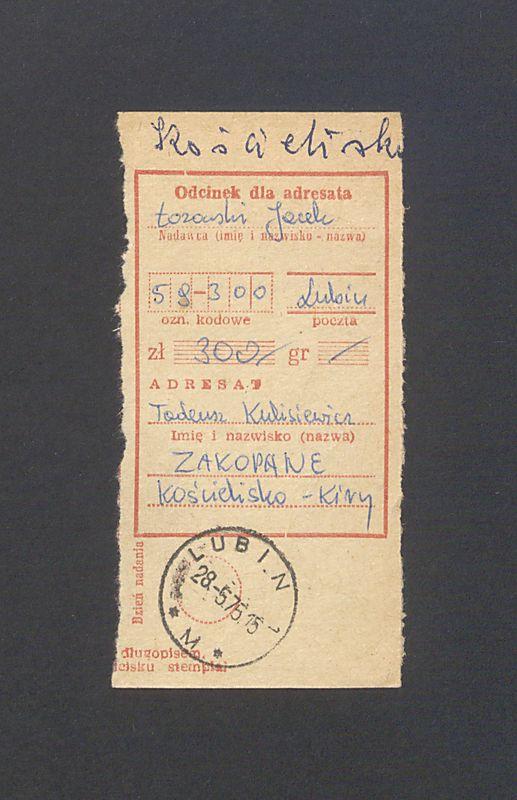 Kościelisko
Odcinek dla adresata
Łozowski Jacek
Nadawca (imię i nazwisko - nazwa)
59-300 Lubin
ozn. kodowe poczta
zł 300/ gr /
ADRESAT
Tadeusz Kulisiewicz
Imię i nazwisko (nazwa)
ZAKOPANE
Kościelisko - Kiry
Dzień nadania
LUBIN 1
28.-5.75.15
* M. *
długopisem,
cisku stempla)